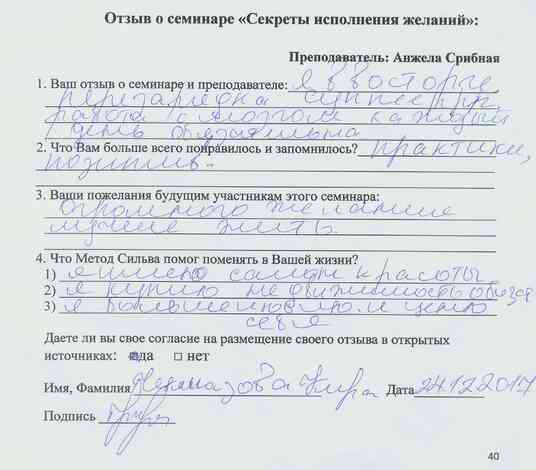 Отзыв о семинаре «Секреты исполнения желаний»:
Преподаватель: Анжела Срибная
1. Ваш отзыв о семинаре и преподавателе: я в восторге,
перезарядка супнеррр
работа с мозгом каждый
день обязательна
2. Что Вам больше всего понравилось и запомнилось? практики,
позитив.
3. Ваши пожелания будущим участникам этого семинара:
Огромного желания
лучше жить.
4. Что Метод Сильва помог поменять в Вашей жизни?
1) я имею салон красоты
2) я купию недвижимость обяза
3) я больше люблю и ценю
себя
Даете ли вы свое согласие на размещение своего отзыва в открытых
источниках: да □ нет
Имя, Фамилия Кира Дата 24.12.2017
Подпись
40